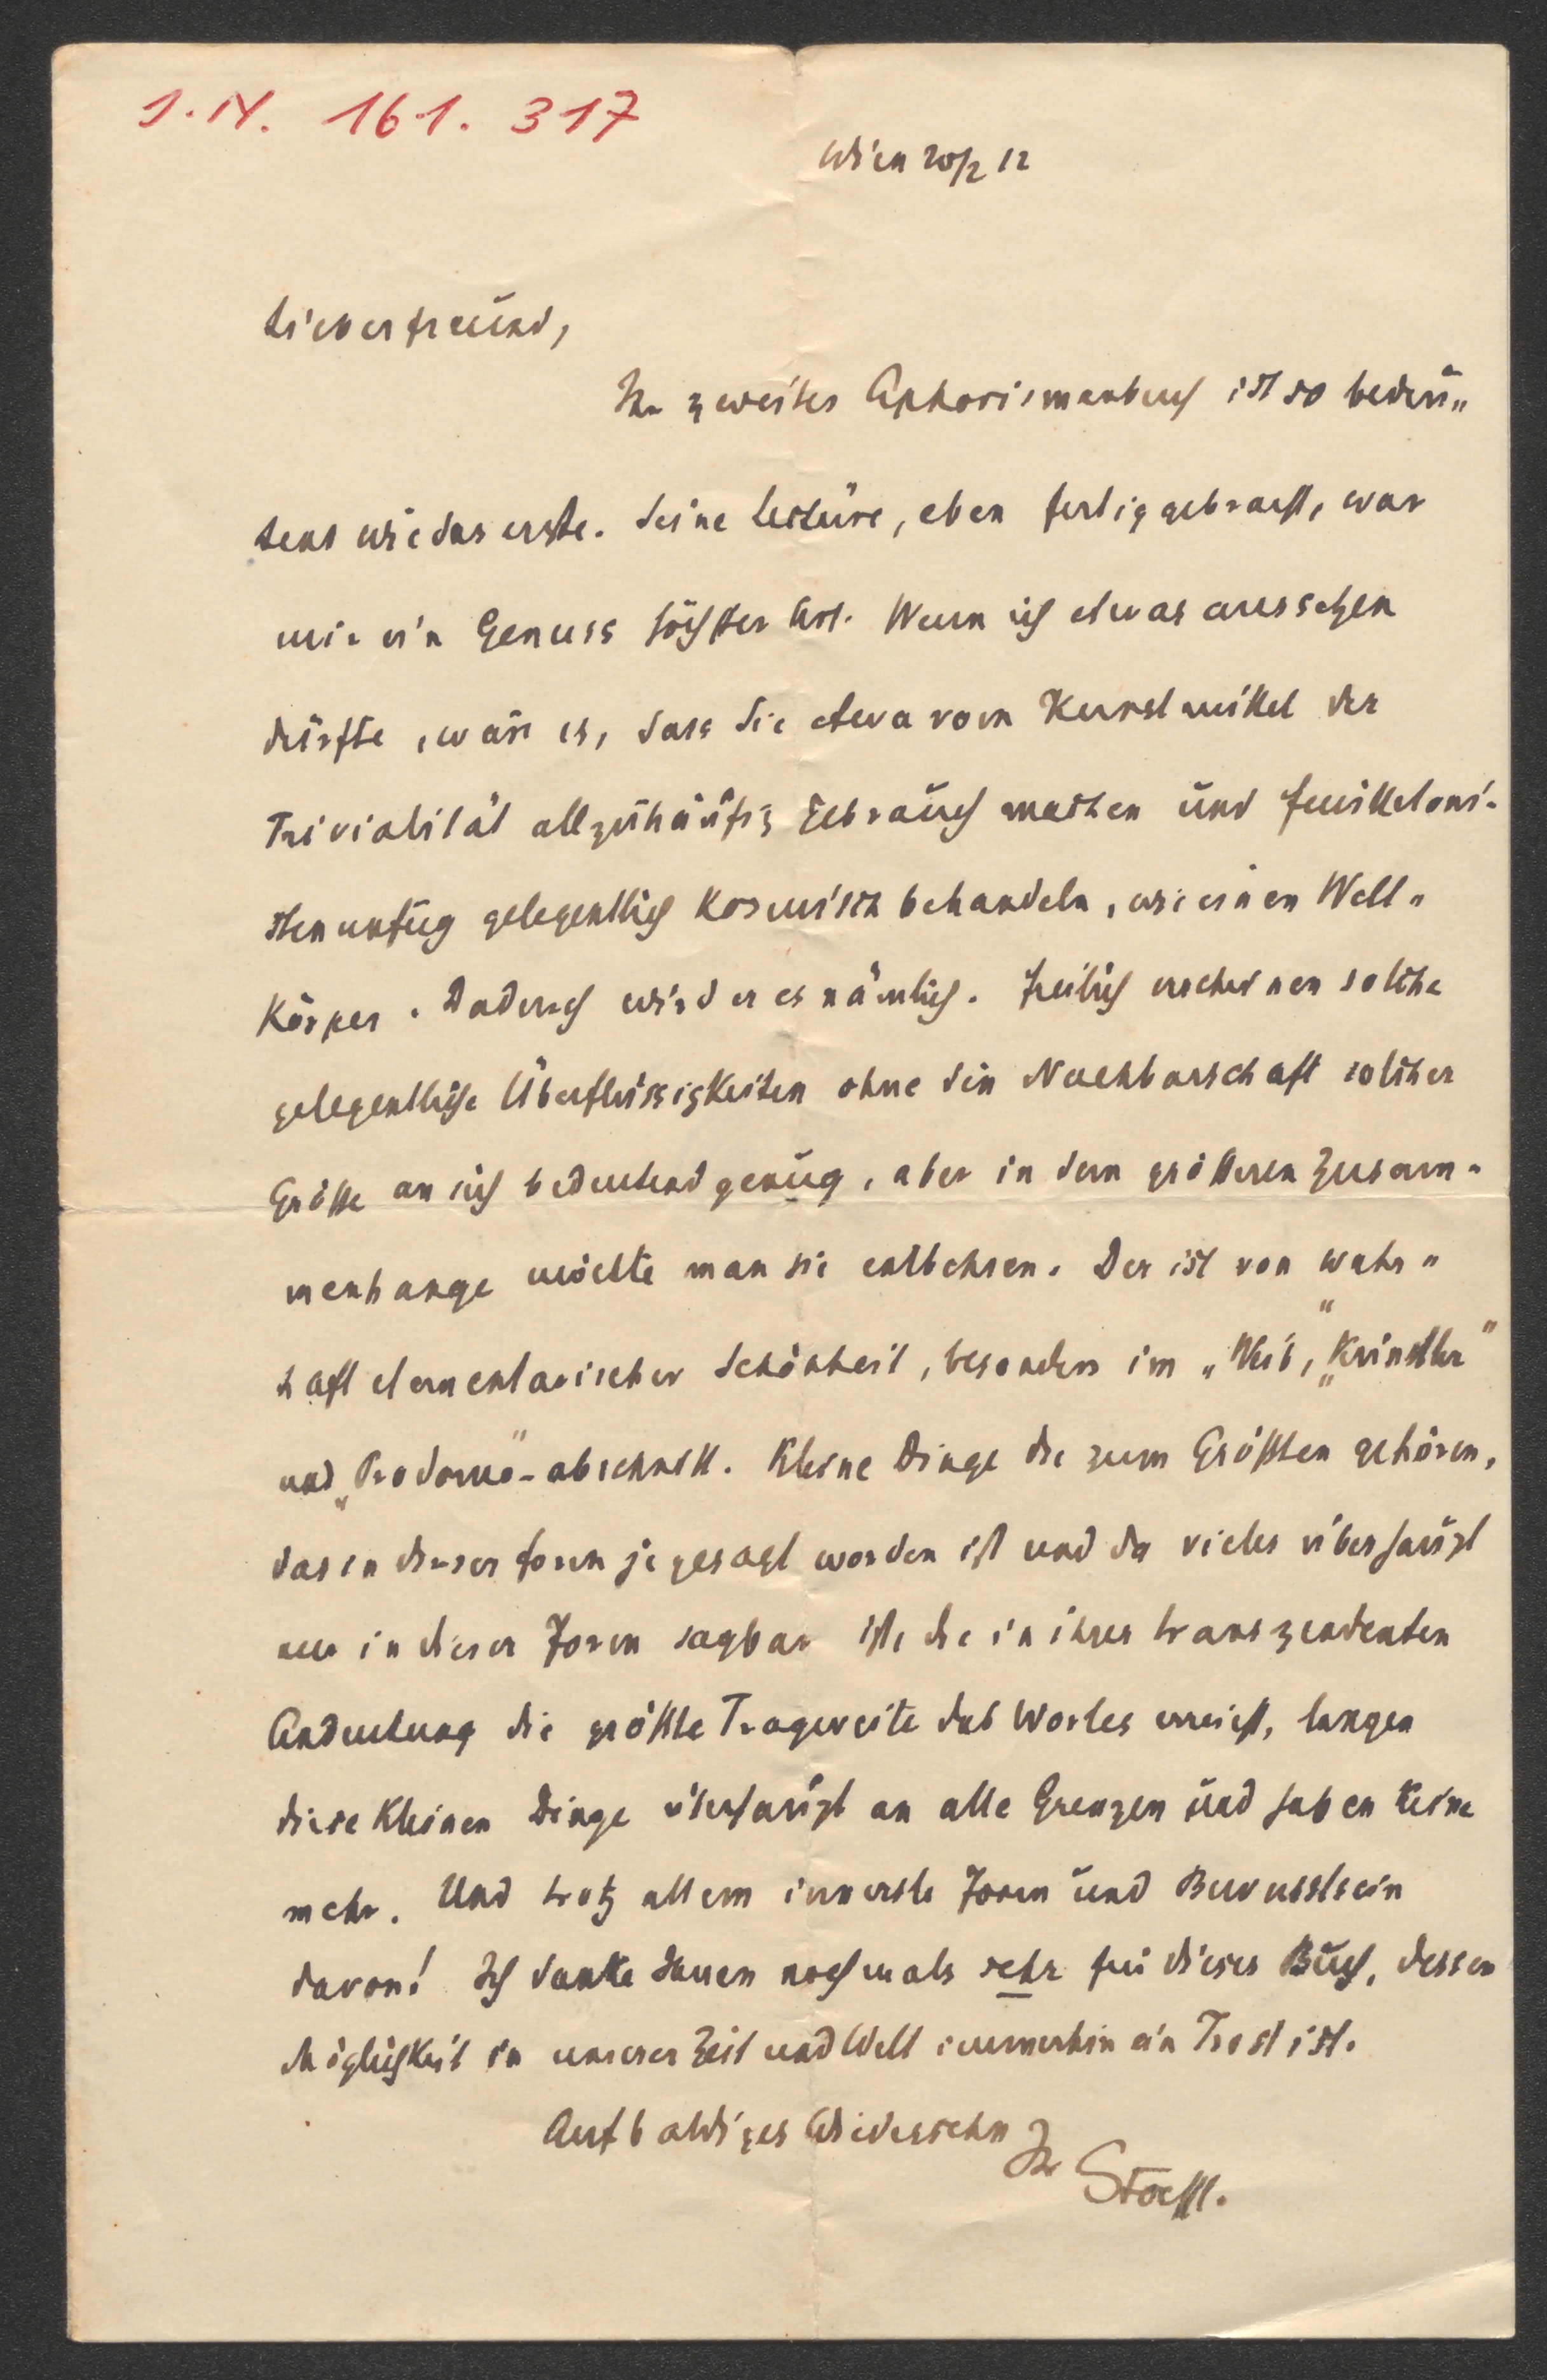 I.N. 161.317
Wien 20/2 12
Lieber Freund,
Ihr zweites Aphorismenbuch ist so bedeu-
tend wie das erste. Seine Lektüre, eben fertiggebracht, war
mir ein Genuss höchster Art. Wenn ich etwas aussetzen
dürfte, wäre es, dass Sie etwa vom Kunstmittel der
Trivialität allzuhäufig Gebrauch machen und Feuilletoni-
stenunfug gelegentlich kosmisch behandeln, wie einen Welt-
Körper. Dadurch wird er es nämlich. Freilich erscheinen solche
gelegentliche Überflüssigkeiten ohne die Nachbarschaft solcher
Größe an sich bedeutend genug, aber in dem größeren Zusam-
menhange möchte man sie entbehren. Der ist von wahr-
haft elementarischer Schönheit, besonders im „Weib", „Künstler"
und „Prodomo"-abschnitt. Kleine Dinge die zum Größten gehören,
das in dieser Form je gesagt worden ist und da vieles überhaupt
nur in dieser Form sagbar ist, die in ihrer transzendenten
Andeutung die größte Tragweite des Wortes erreicht, langen
diese kleinen Dinge überhaupt an alle Grenzen und haben keine
mehr. Und trotz allem innerste Form und Bewusstsein
davon! Ich danke Ihnen nochmals sehr für dieses Buch, dessen
Möglichkeit in unserer Zeit und Welt immerhin ein Trost ist.
Auf baldiges Wiedersehn
Ihr
Stoessl.